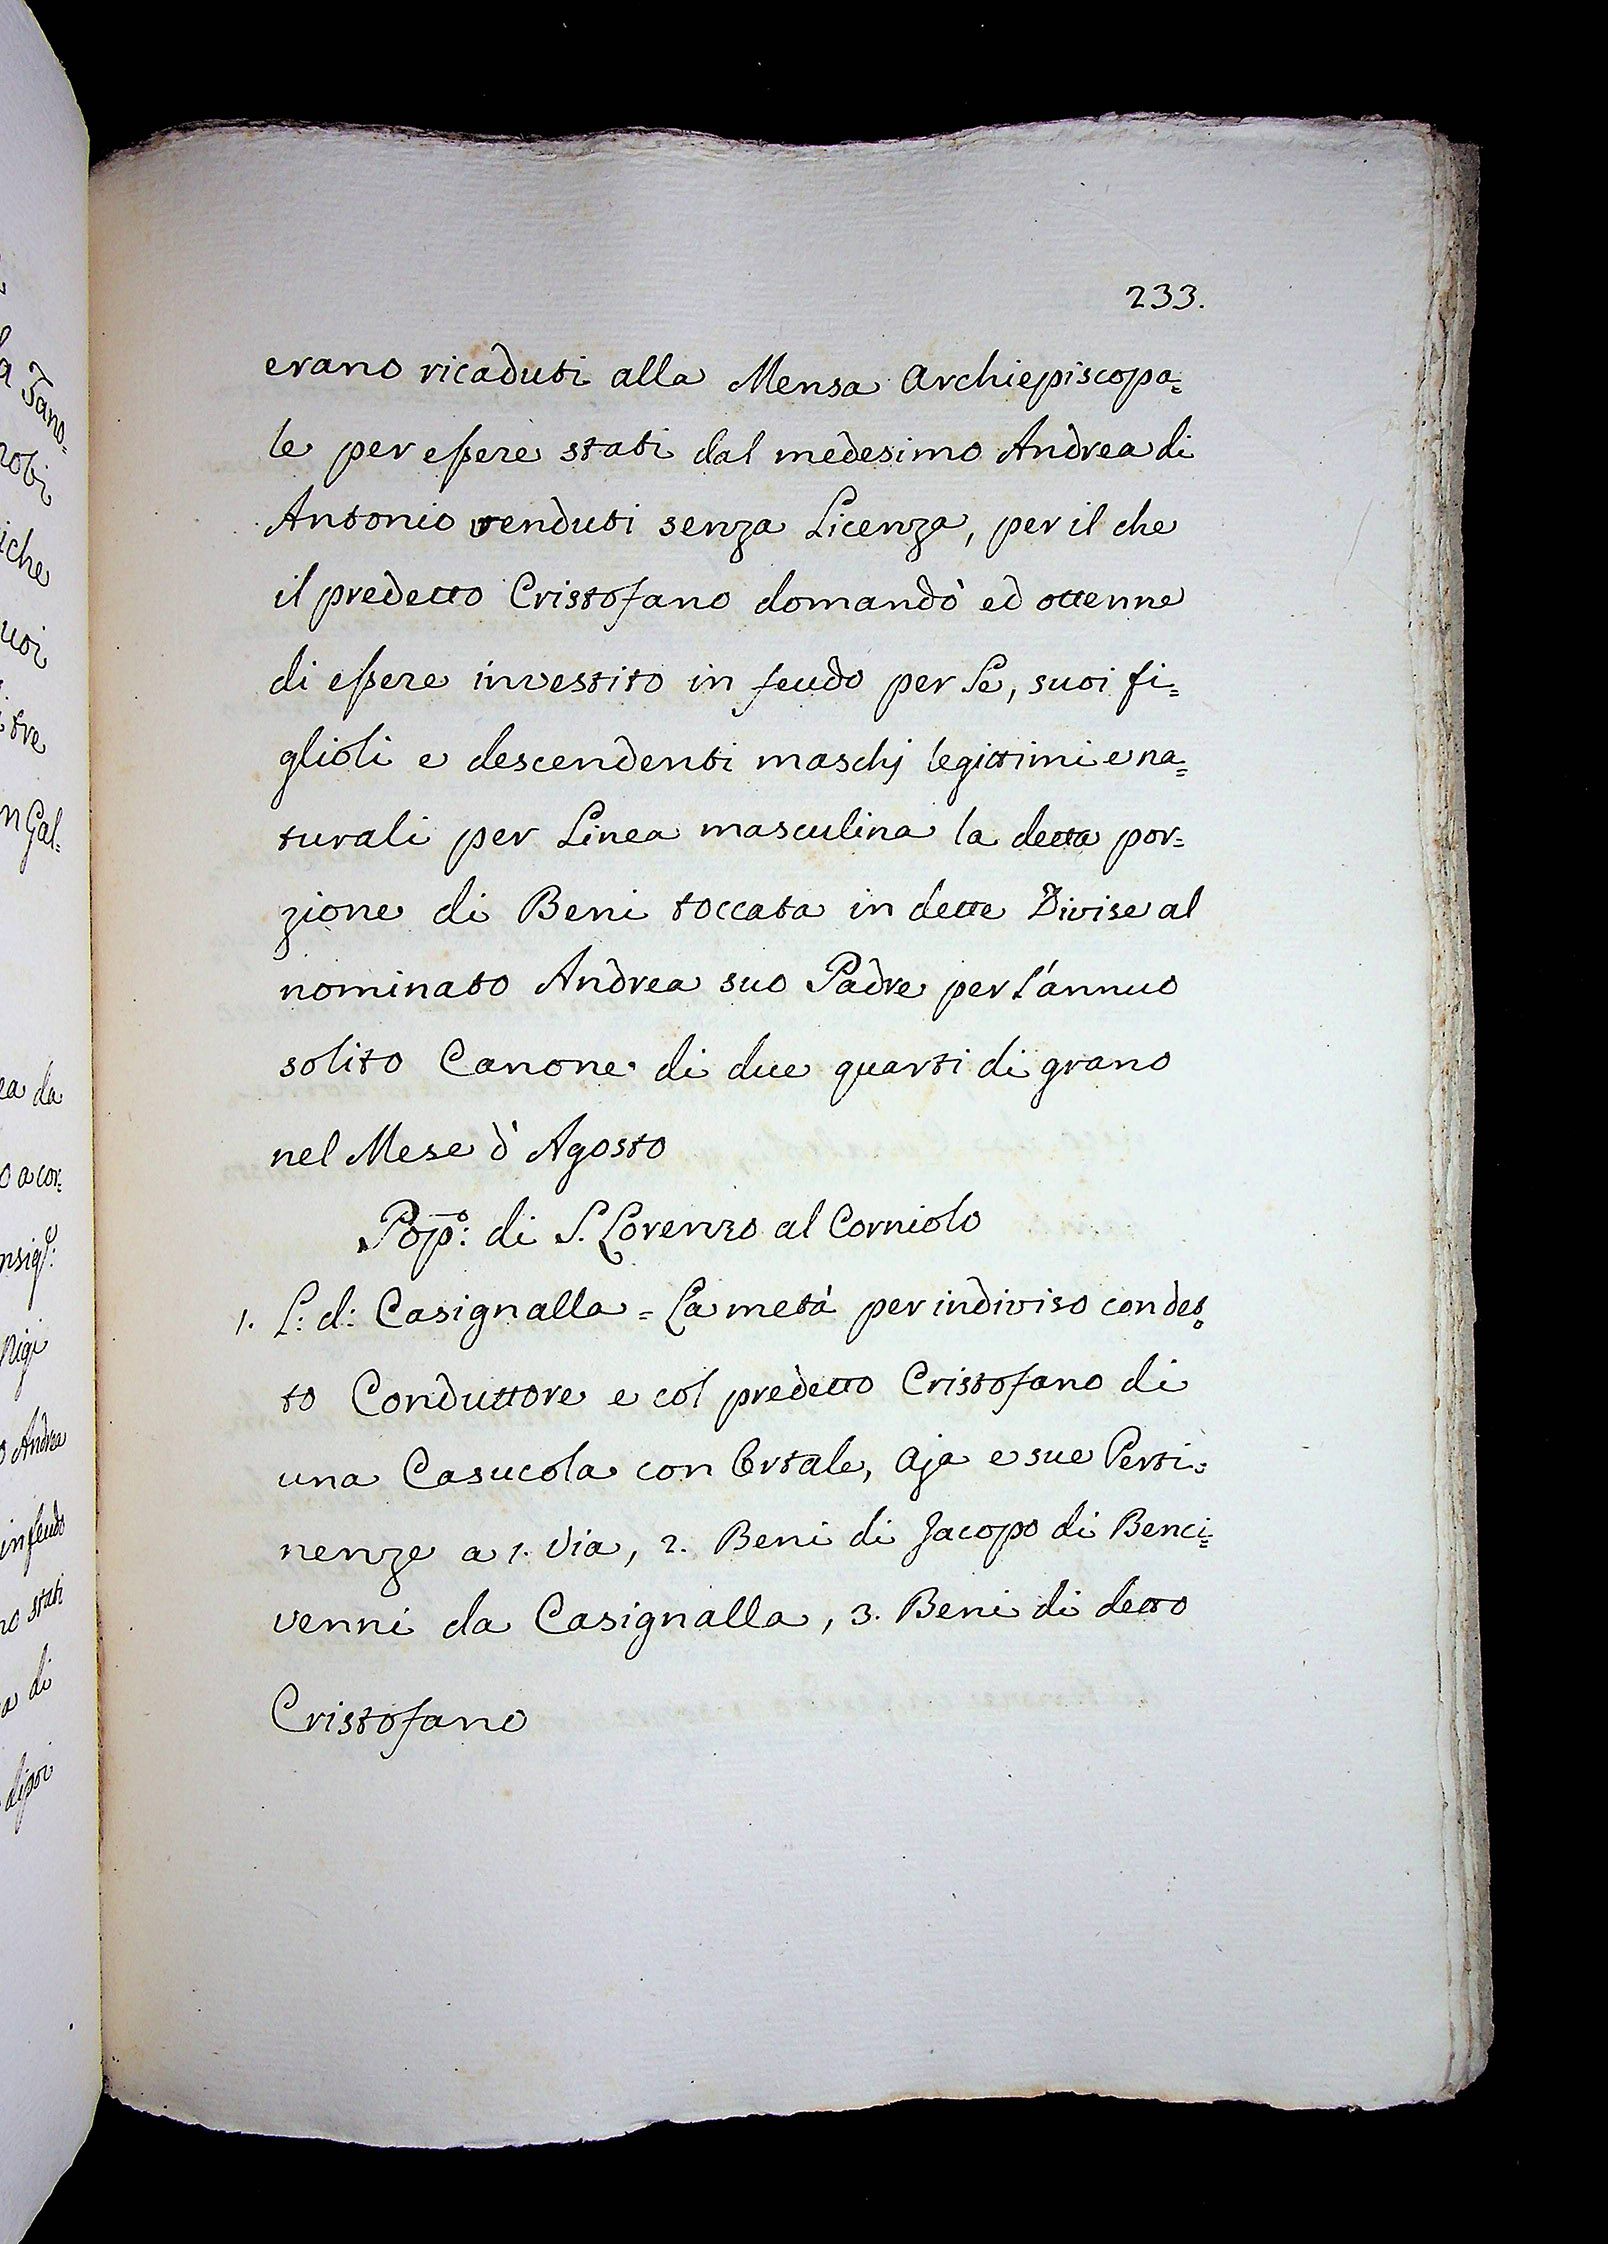 233.
erano ricaduti alla Mensa Archiepiscopa=
le per essere stati dal medesimo Andrea di
Antonio venduti senza Licenza, per il che
il predetto Cristofano domandò ed ottenne
di essere investito in feudo per Se, suoi fi=
glioli e descendenti maschj legittimi e na=
turali per Linea masculina la detta por=
zione di Beni toccata in dette Divise al
nominato Andrea suo Padre per l'annuo
solito Canone di due quarti di grano
nel Mese d'Agosto
Pop̄o: di S. Lorenzo al Corniolo
1. L: d: Casignalla = La metà per indiviso con det=
to Conduttore e col predetto Cristofano di
una Casucola con Ortale, Aja e sue Perti=
nenze a 1. Via, 2. Beni di Jacopo di Benci=
venni da Casignalla, 3. Beni di detto
Cristofano